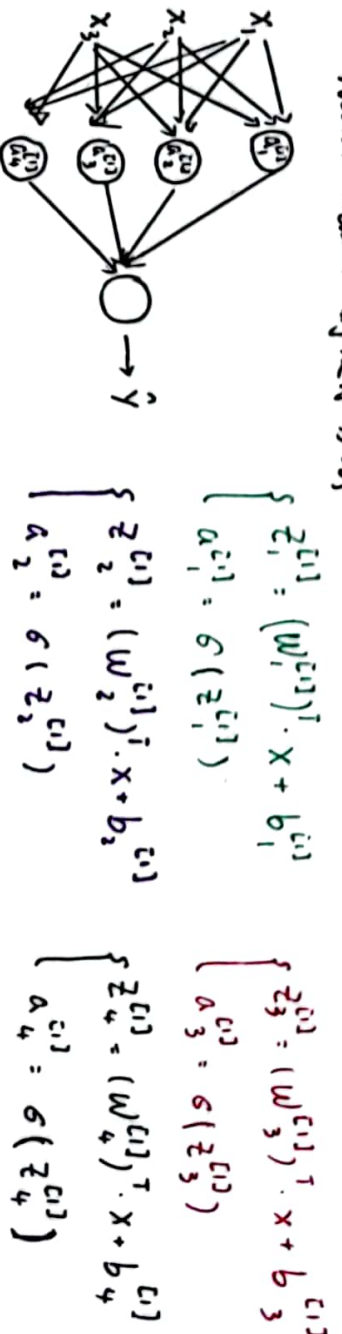 x₁
x₂
x₃
a₁^[1]
a₂^[1]
a₃^[1]
a₄^[1]
→ ŷ
z₁^[1] = (W₁^[1])^T · x + b₁^[1]
a₁^[1] = σ(z₁^[1])
z₂^[1] = (W₂^[1])^T · x + b₂^[1]
a₂^[1] = σ(z₂^[1])
z₃^[1] = (W₃^[1])^T · x + b₃^[1]
a₃^[1] = σ(z₃^[1])
z₄^[1] = (W₄^[1])^T · x + b₄^[1]
a₄^[1] = σ(z₄^[1])